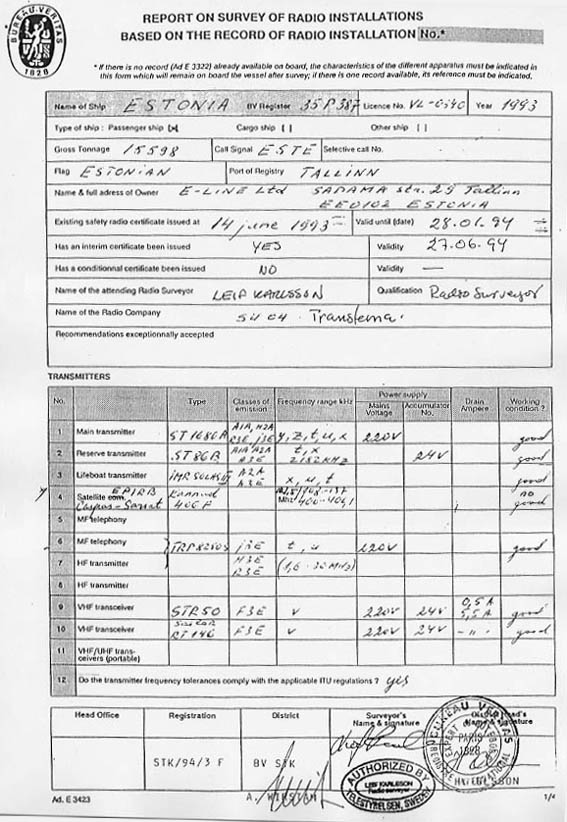 BUREAU VERITAS
1828
REPORT ON SURVEY OF RADIO INSTALLATIONS
BASED ON THE RECORD OF RADIO INSTALLATION No.*
* If there is no record (Ad E 3322) already available on board, the characteristics of the different apparatus must be indicated in
this form which will remain on board the vessel after survey; if there is one record available, its reference must be indicated.
Name of Ship ESTONIA BV Register 35P387 Licence No. VL-0340 Year 1993
Type of ship : Passenger ship [x] Cargo ship [ ] Other ship [ ]
Gross Tonnage 15598 Call Signal ESTE Selective call No.
Flag ESTONIAN Port of Registry TALLINN
Name & full adress of Owner E-LINE Ltd SADAMA str. 29 Tallinn
EE0102 ESTONIA
Existing safety radio certificate issued at 14 june 1993 Valid until (date) 28.01.94
Has an interim certificate been issued YES Validity 27.06.94
Has a conditionnal certificate been issued NO Validity —
Name of the attending Radio Surveyor LEIF KARLSSON Qualification Radio Surveyor
Name of the Radio Company
Recommendations exceptionnally accepted
TRANSMITTERS
No. Type Classes of emission Frequency range kHz Power supply Mains Voltage Accumulator No. Drain Ampere Working condition ?
1 Main transmitter ST1680A A1A, H2A R3E, J3E y, z, t, u, x 220V good
2 Reserve transmitter ST86B A1A A2A t, x 2182KHZ 24V good
3 Lifeboat transmitter A2A A3E x, u, t good
4 Satellite com. EPIRB Cospas-Sarsat Kannad 406F MHz no good
5 MF telephony
6 MF telephony J3E t, u 220V good
7 HF telephony H3E R3E (1,6-30 MHz)
8 HF transmitter
9 VHF transceiver STR50 F3E v 220V 24V 0,5A 5,5A good
10 VHF transceiver Sailor RT146 F3E v 220V 24V - " - good
11 VHF/UHF trans-
ceivers (portable)
12 Do the transmitter frequency tolerances comply with the applicable ITU regulations ? yes
Head Office Registration District Surveyor's Name & signature District Head's Name & signature
STK/94/3 F BV STK
BUREAU VERITAS
PARIS
1828
AUTHORIZED BY
LEIF KARLSSON
Radio surveyor
TELESTYRELSEN, SWEDEN
Ad. E 3423 1/4